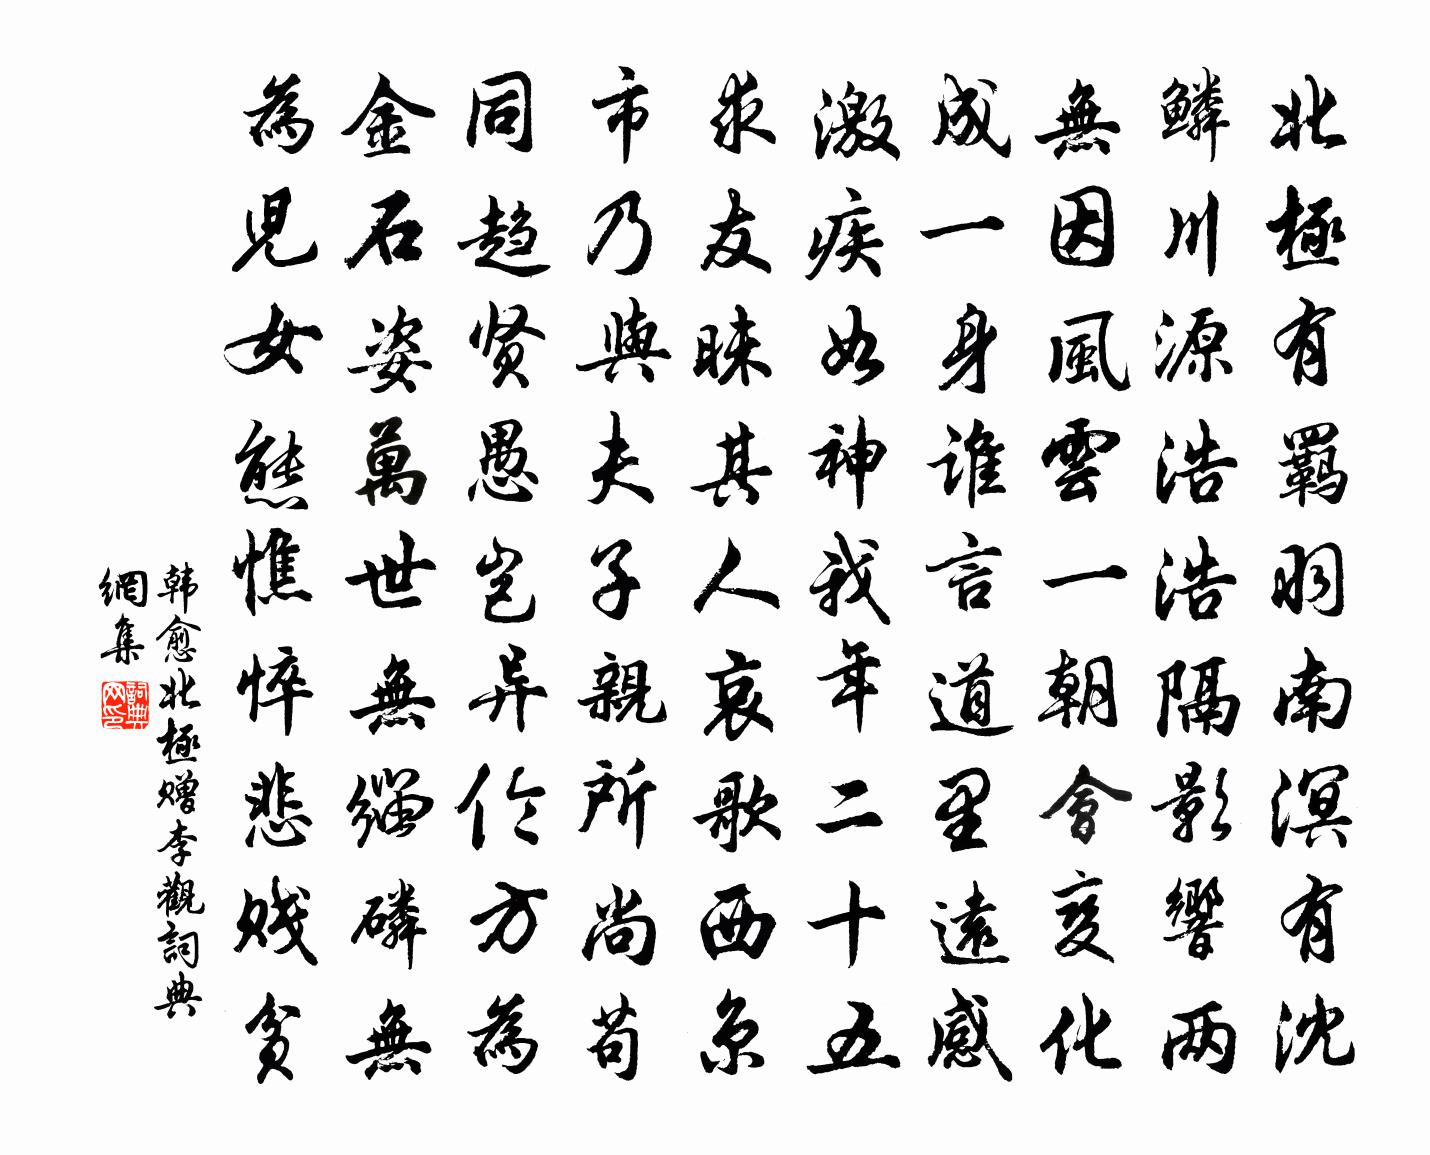 北極有羈羽南溟有沈
鱗川源浩浩隔影響两
無因風雲一朝會变化
成一身誰言道里遠感
激疾如神我年二十五
求友昧其人哀歌西京
市乃與夫子親所尚苟
同趋贤愚豈异伦方為
金石姿萬世無緇磷無
為兒女態憔悴悲贱贫
韩愈北極赠李觀詞典
網集
詞典
网印